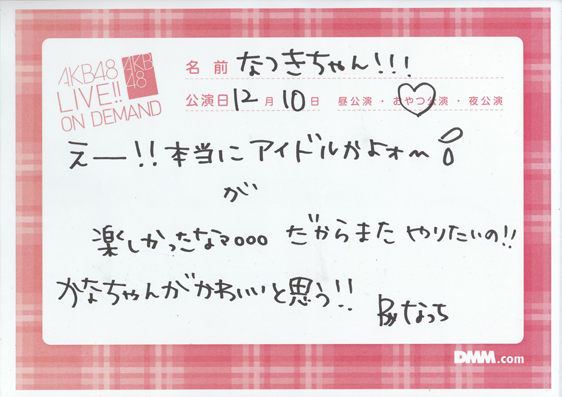 AKB48
LIVE!!
ON DEMAND
AKB
48
名前 なつきちゃん!!!
公演日 12月10日 昼公演・おやつ公演・夜公演
えー!!本当にアイドルかよォ〜
が
楽しかったなマooo だからまたやりたいの!!
かなちゃんがかわいいと思う!!
Byなっち
DMM.com